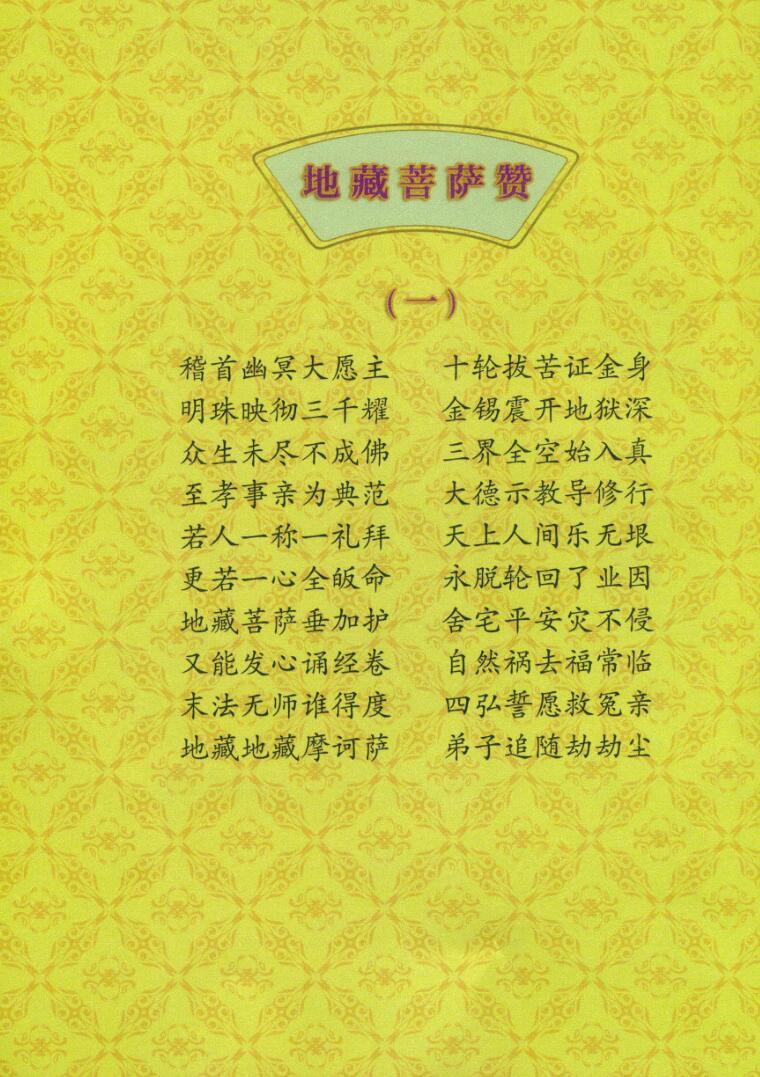 地藏菩萨赞
（一）
稽首幽冥大愿主 十轮拔苦证金身
明珠映彻三千耀 金锡震开地狱深
众生未尽不成佛 三界全空始入真
至孝事亲为典范 大德示教导修行
若人一称一礼拜 天上人间乐无垠
更若一心全皈命 永脱轮回了业因
地藏菩萨垂加护 舍宅平安灾不侵
又能发心诵经卷 自然祸去福常临
末法无师谁得度 四弘誓愿救冤亲
地藏地藏摩诃萨 弟子追随劫劫尘